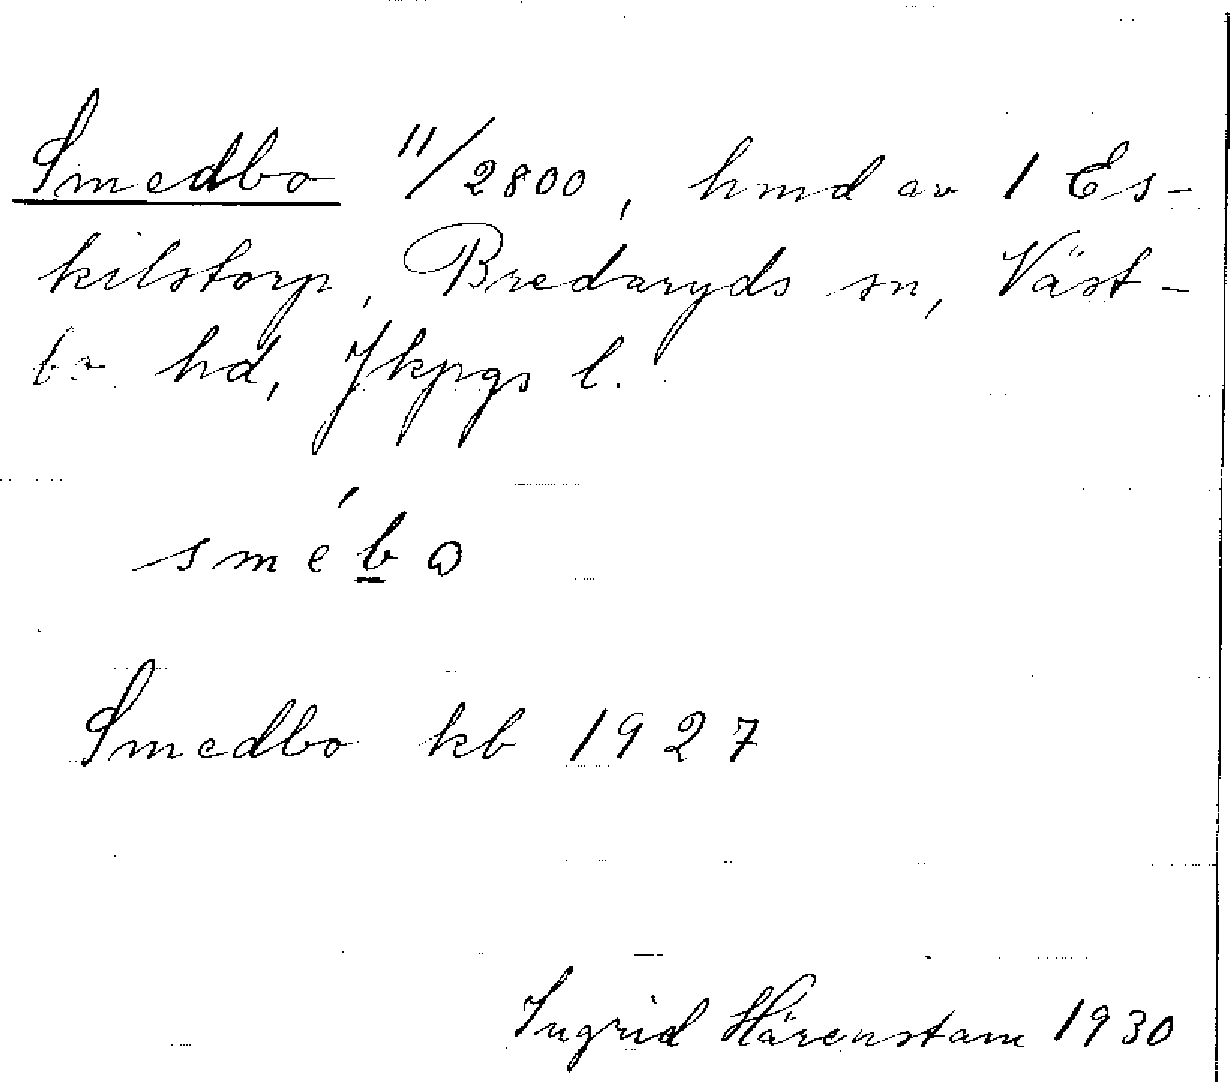 Smedbo 11/2800, hmd av 1 Es-
kilstorp, Bredaryds sn, Väst-
bo hd, Jkpgs l.
sme´bω
Smedbo kb 1927
Ingrid Härenstam 1930